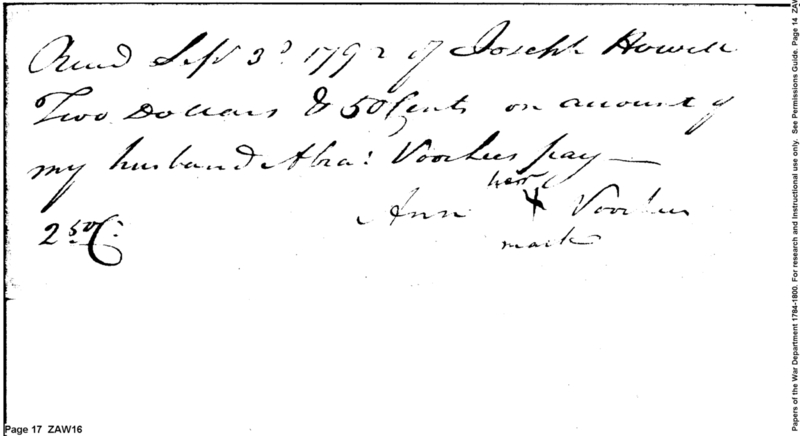 Recd Sept 3d 1792 of Joseph Howell
Two Dollars & 50 Cents on account of
my husband Abra: Voorhees pay —
her
Ann X Voorhees
mark
2 50/C:
Page 17 ZAW16
Papers of the War Department 1784-1800. For research and instructional use only. See Permissions Guide. Page 14 ZAW